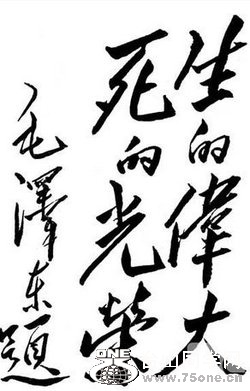 生的偉大
死的光榮
毛澤东題
ONE
www.75one.cn